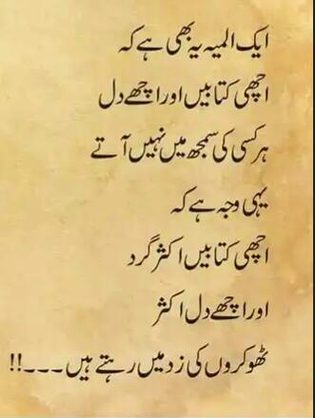 ایک المیہ یہ بھی ہے کہ
اچھی کتابیں اور اچھے دل
ہر کسی کی سمجھ میں نہیں آتے
یہی وجہ ہے کہ
اچھی کتابیں اکثر گرد
اور اچھے دل اکثر
ٹھوکروں کی زد میں رہتے ہیں۔۔۔!!